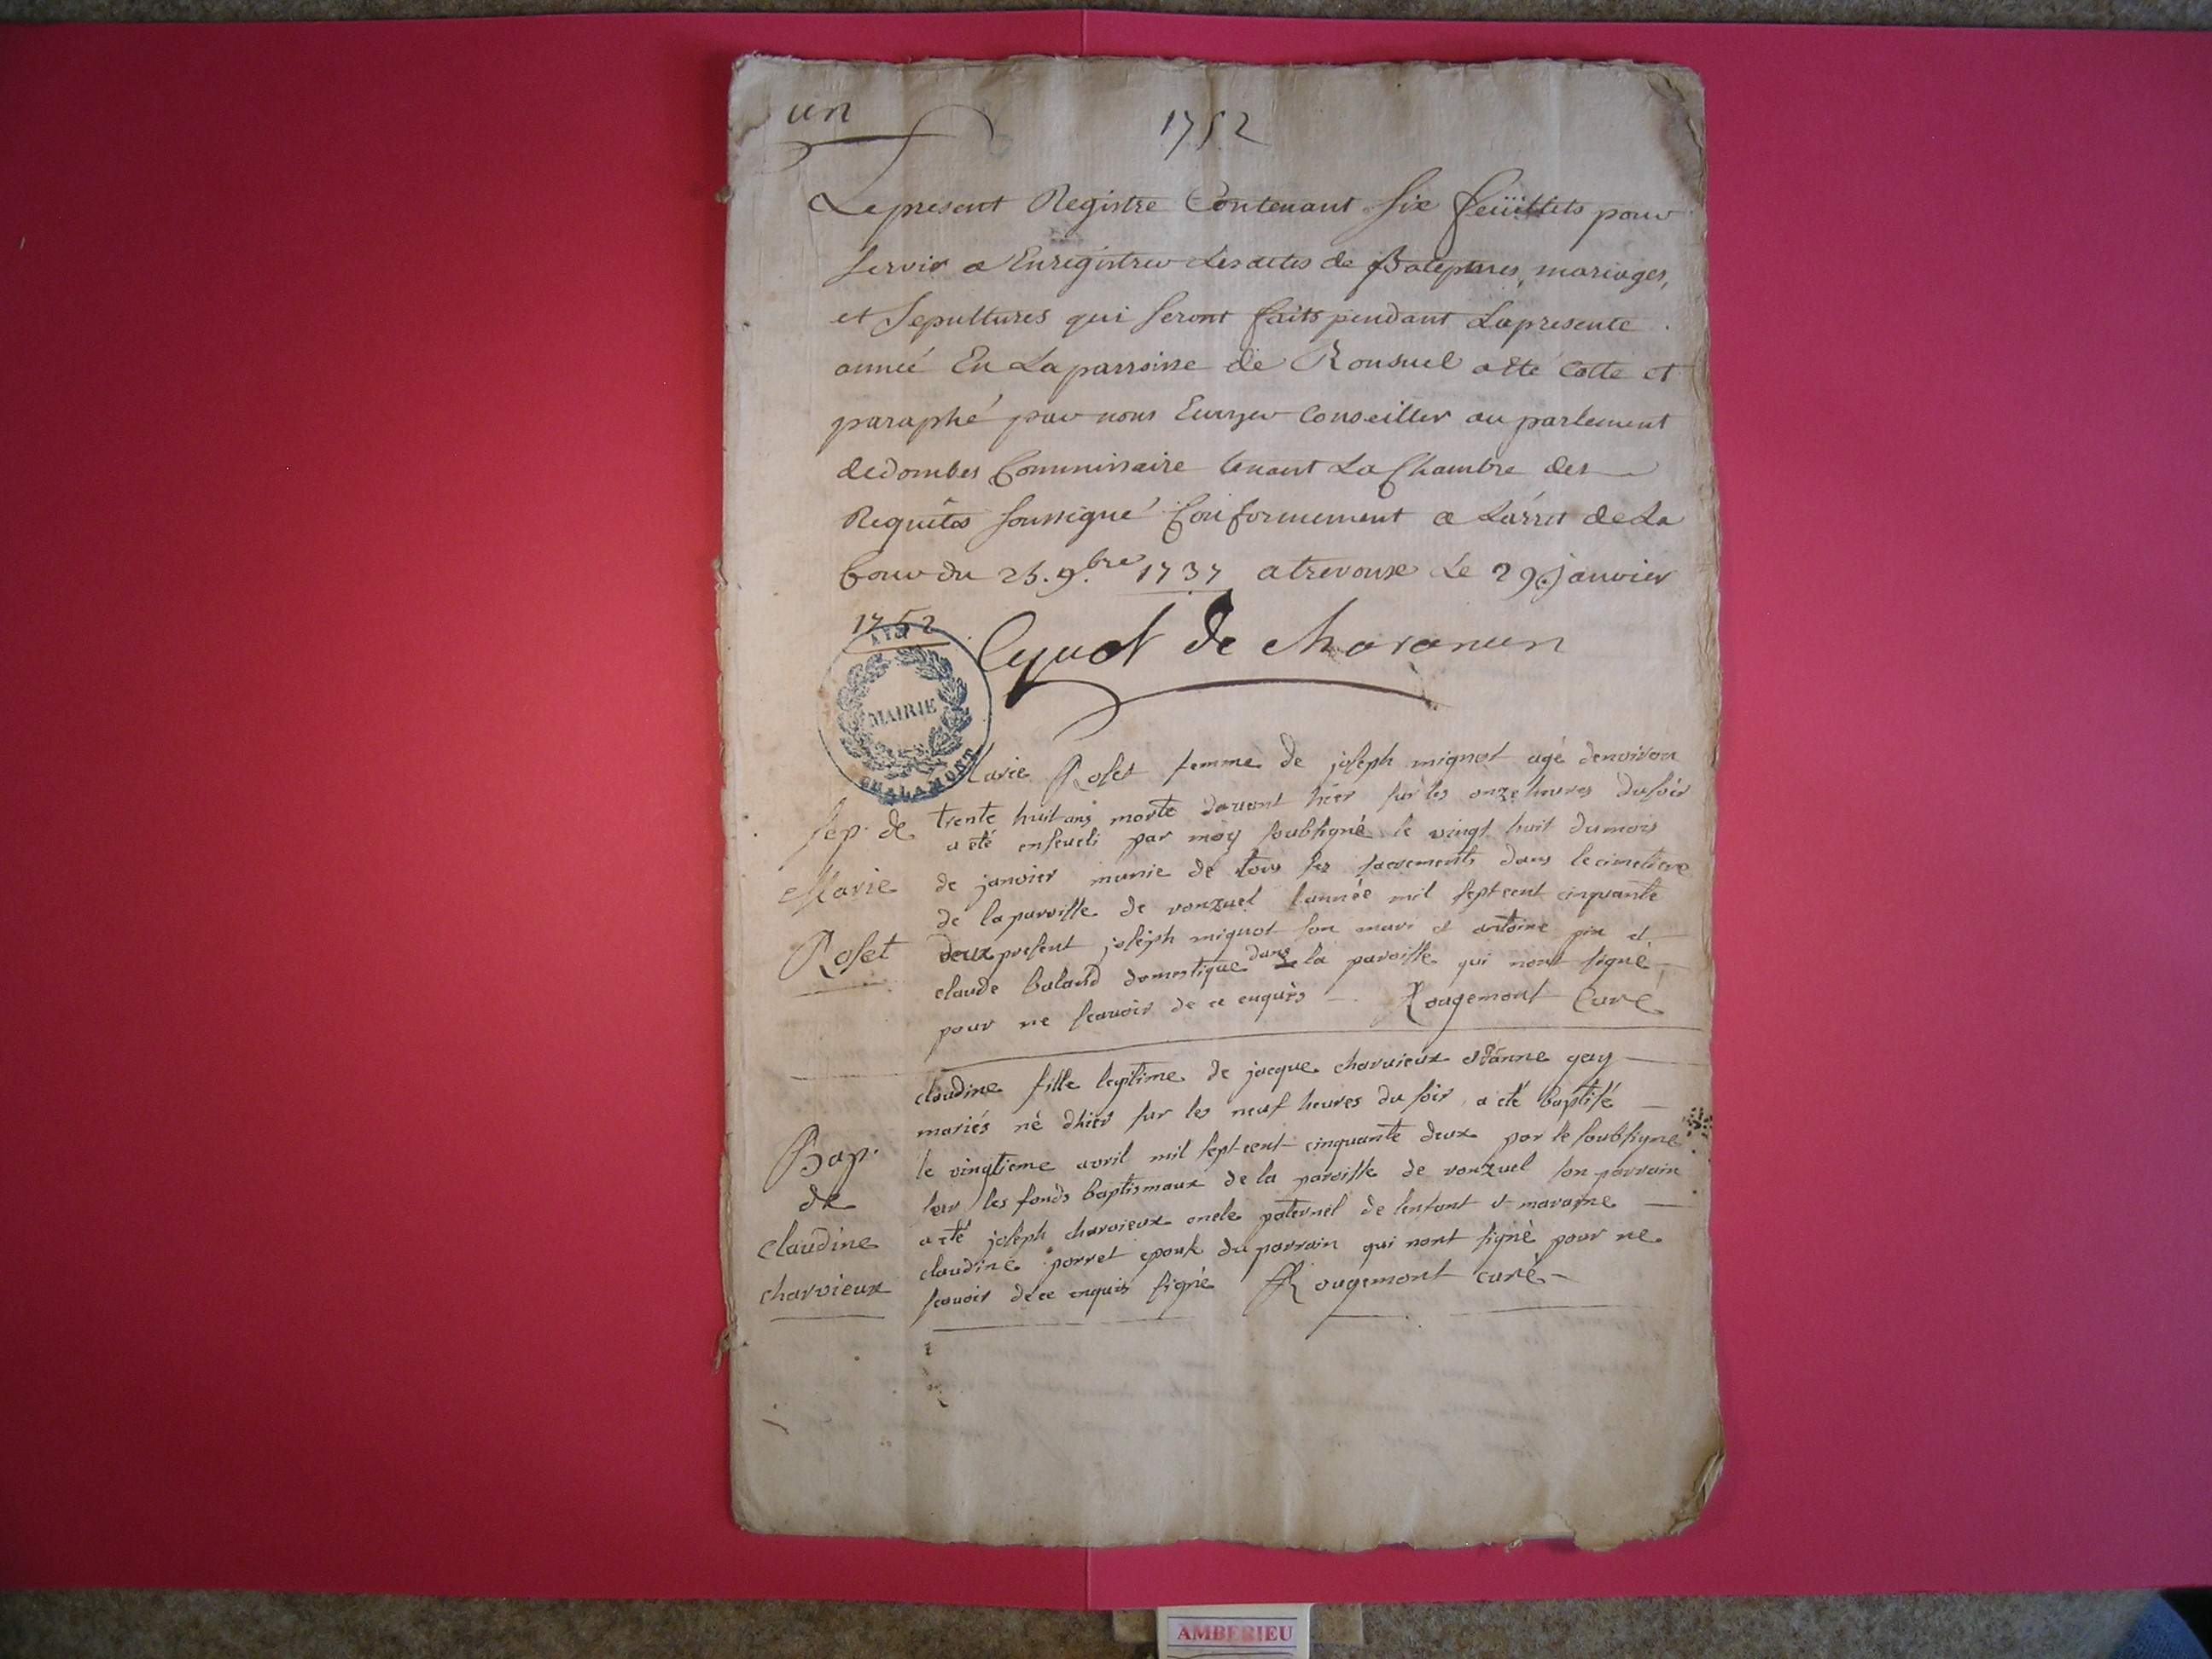 un
1752
Le present Registre Contenant six feüillets pour
servir a Enregistrer Les actes de Batepmes, mariages,
et Sepultures qui seront faits pendant La presente
année En La parroisse de Ronsuel a été Cotté et
paraphé par nous Conseiller au parlement
de dombes Commissaire tenant La Chambre des
Requêtes soussigné Conformement a L'arret de La
Cour du 25. 9.bre 1737 a trevoux Le 29 Janvier
1752
Cynot de Charanun
AIN
MAIRIE
CHALAMONT
Marie Roset femme de joseph mignot agé denviron
trente huit ans morte davant hier sur les onze heures du soir
a été enseveli par moy soubsigné le vingt huit du mois
de janvier munie de tous ses sacrements dans le cimetiere
de la paroisse de ronzuel l'année mil sept cent cinquante
deux present joseph mignot son mari et antoine pin et
claude baland domestique dans la paroisse qui n'ont signé
pour ne scavoir de ce enquis Rougemont Curé
sep. de
Marie
Roset
claudine fille legitime de jacque charvieux et d'anne gay
mariés né d'hier sur les neuf heures du soir a été baptisé
le vingtieme avril mil sept cent cinquante deux par le soubsigné
sur les fonds baptismaux de la paroisse de ronzuel son parrain
a été joseph charvieux oncle paternel de l'enfant et maraine
claudine porret epouse du parrain qui n'ont signé pour ne
scavoir de ce enquis signé Rougemont curé
Bap.
de
claudine
charvieux
AMBERIEU